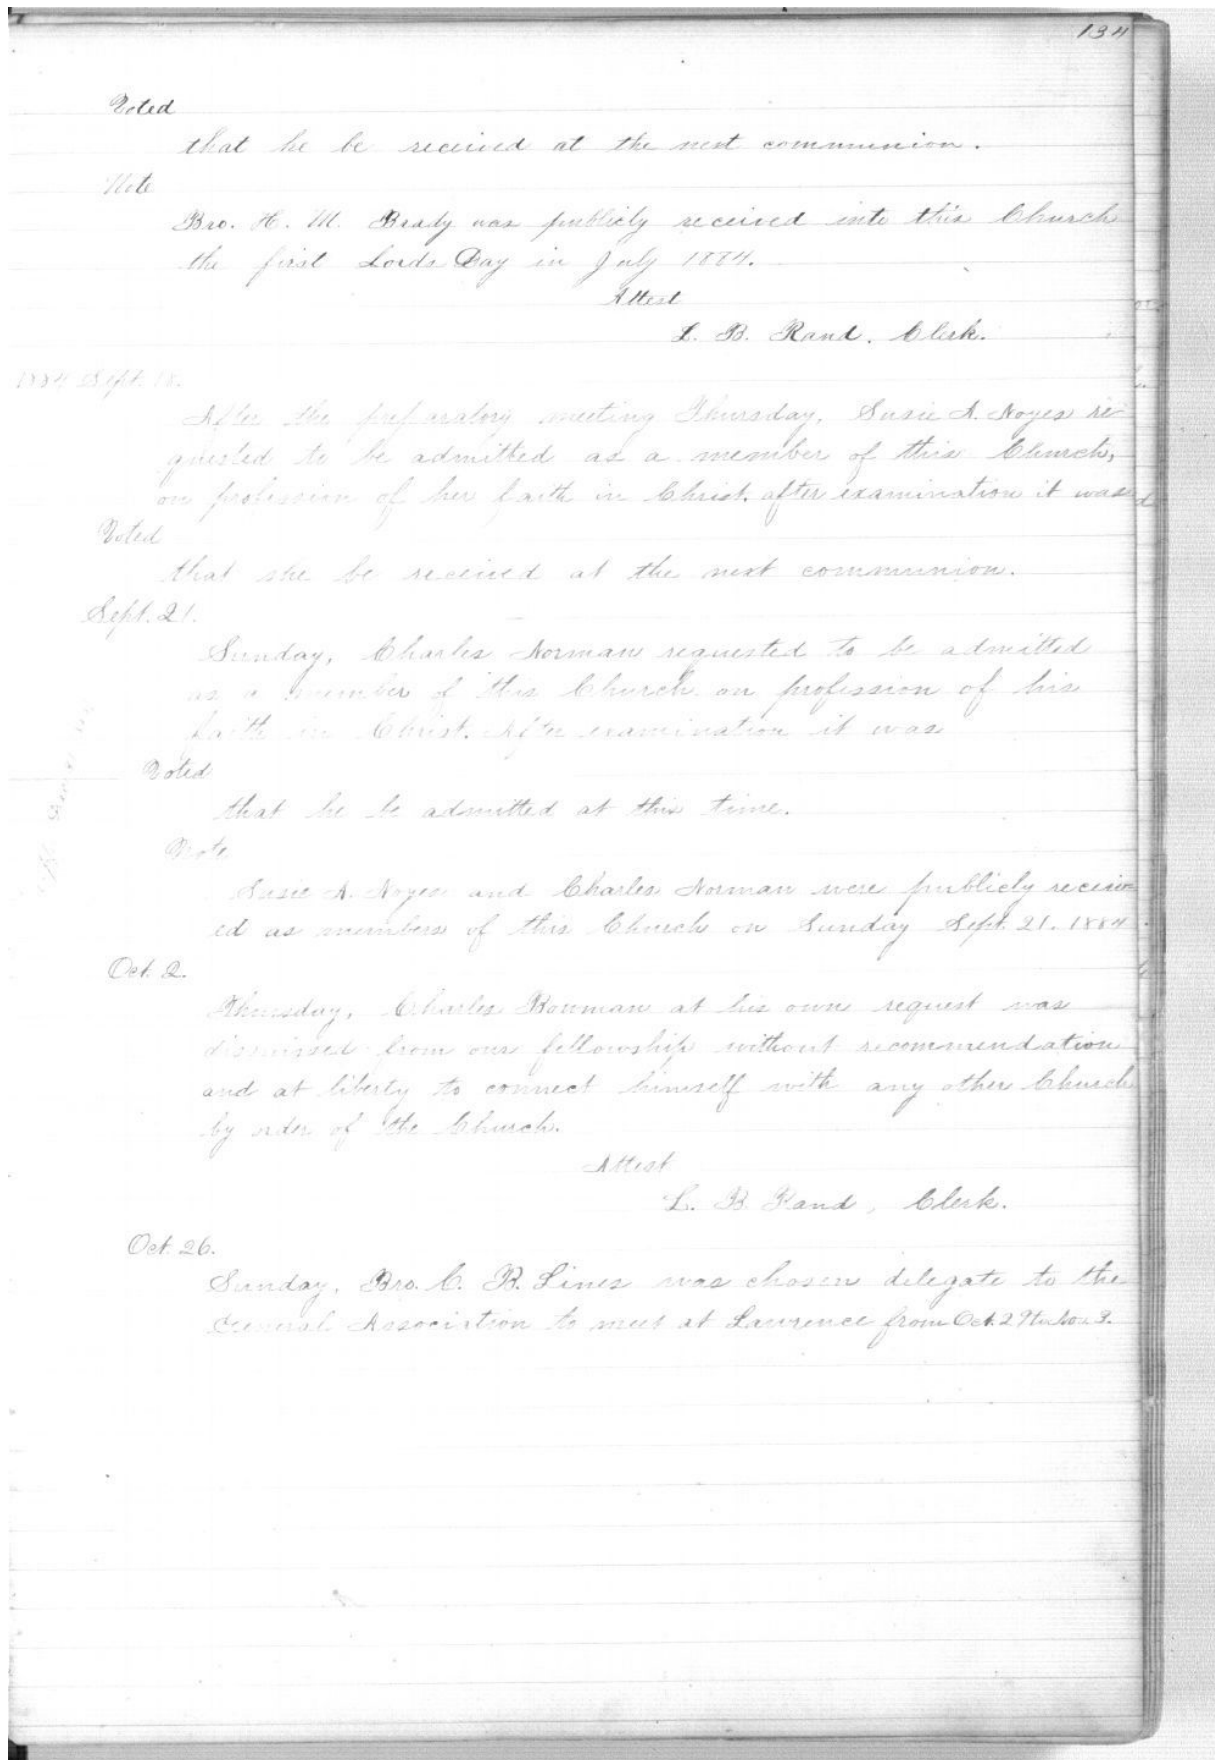 134
Voted
that he be received at the next communion.
Note
Bro. H. M. Brady was publicly received into this Church
the first Lords Day in July 1884.
Attest
L. B. Rand. Clerk.
1884 Sept. 18.
After the preparatory meeting Thursday, Susie A. Noyes re-
quested to be admitted as a member of this Church,
on profession of her faith in Christ. after examination it was
Voted
that she be received at the next communion.
Sept. 21.
Sunday, Charles Norman requested to be admitted
as a member of this Church on profession of his
faith in Christ. After examination it was
Voted
that he be admitted at this time.
Note
Susie A. Noyes and Charles Norman were publicly receiv-
ed as members of this Church on Sunday Sept. 21. 1884
Oct. 2.
Thursday, Charles Bowman at his own request was
dismissed from our fellowship without recommendation
and at liberty to connect himself with any other Church
by order of the Church.
Attest
L. B. Rand, Clerk.
Oct. 26.
Sunday, Bro. C. B. Lines was chosen delegate to the
General Association to meet at Lawrence from Oct. 29 to Nov 3.